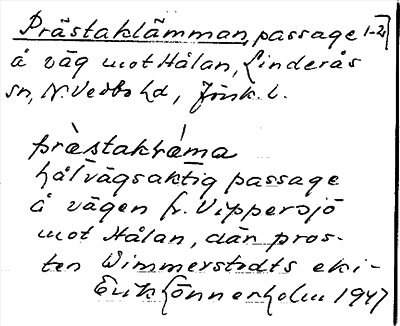 Prästaklämman, passage 1-2
å väg mot Hålan, Linderås
sn, N. Vedbo hd, Jönk. l.
prästaklæma
hålvägsaktig passage
å vägen fr. Vippersjö
mot Hålan, där pros-
ten Wimmerstedts eki-
Erik Lönnerholm 1947